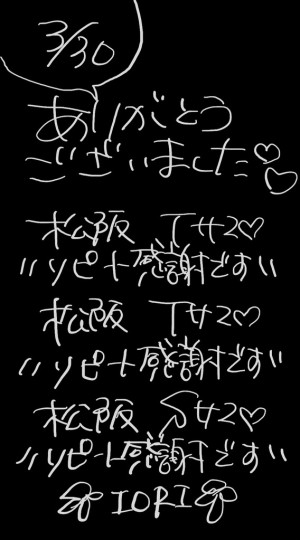 3/30
ありがとう
ございました♡♡
松阪 Tサ2♡
"リピート感謝です"
松阪 Tサ2♡
"リピート感謝です"
松阪 Sサ2♡
"リピート感謝です"
IORI